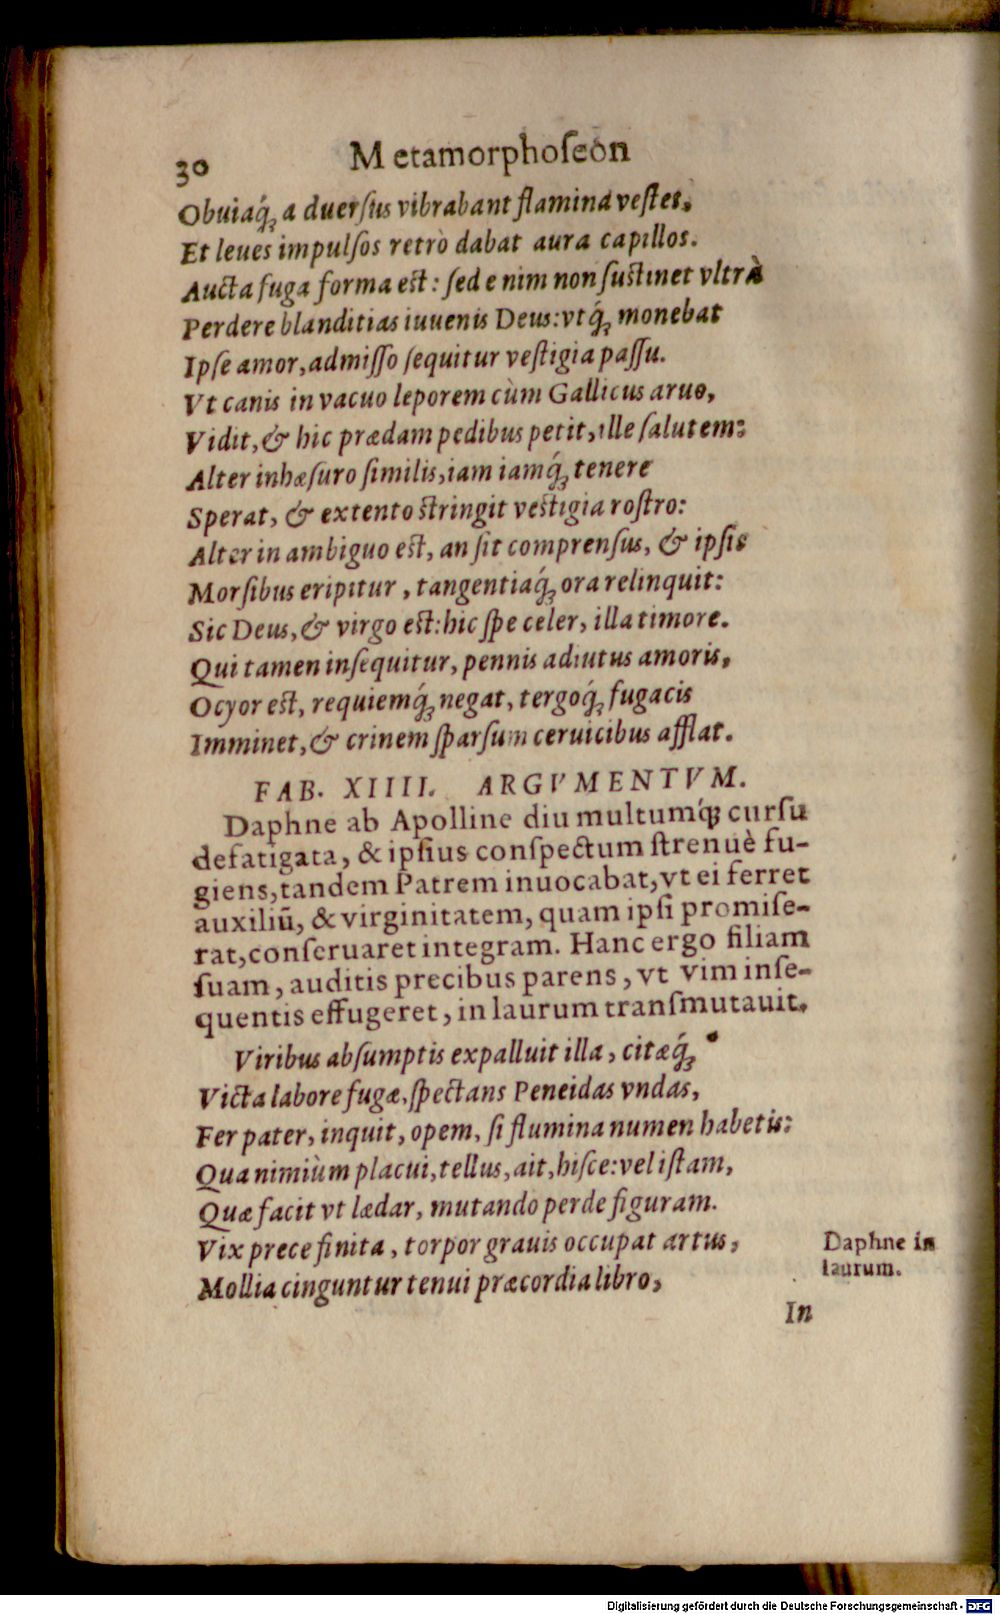 30 Metamorphoſeòn
Obuiaq́; aduerſus vibrabant flamina veſtes,
Et leues impulſos retrò dabat aura capillos.
Aucta fuga forma est: ſed enim non ſustinet vltrà
Perdere blanditias iuuenis Deus: vtq́; monebat
Ipſe amor, admiſſo ſequitur veſtigia paſſu.
Vt canis in vacuo leporem cùm Gallicus aruo,
Vidit, & hic prædam pedibus petit, ille ſalutem:
Alter inhæſuro ſimilis, iam iamq́; tenere
Sperat, & extento stringit vestigia roſtro:
Alter in ambiguo est, an ſit comprenſus, & ipſis
Morſibus eripitur, tangentiaq́; ora relinquit:
Sic Deus, & virgo est: hic ſpe celer, illa timore.
Qui tamen inſequitur, pennis adiutus amoris,
Ocyor est, requiemq́; negat, tergoq́; fugacis
Imminet, & crinem ſparſum ceruicibus afflat.
FAB. XIIII. ARGVMENTVM.
Daphne ab Apolline diu multumq́; curſu
defatigata, & ipſius conſpectum ſtrenuè fu-
giens, tandem Patrem inuocabat, vt ei ferret
auxiliū, & virginitatem, quam ipſi promiſe-
rat, conſeruaret integram. Hanc ergo filiam
ſuam, auditis precibus parens, vt vim inſe-
quentis effugeret, in laurum tranſmutauit.
Viribus abſumptis expalluit illa, citæq́;
Victa labore fugæ, ſpectans Peneidas vndas,
Fer pater, inquit, opem, ſi flumina numen habetis:
Qua nimiùm placui, tellus, ait, hiſce: vel iſtam,
Quæ facit vt lædar, mutando perde figuram.
Vix prece finita, torpor grauis occupat artus,
Mollia cinguntur tenui præcordia libro,
Daphne in
laurum.
In
Digitalisierung gefördert durch die Deutsche Forschungsgemeinschaft - DFG